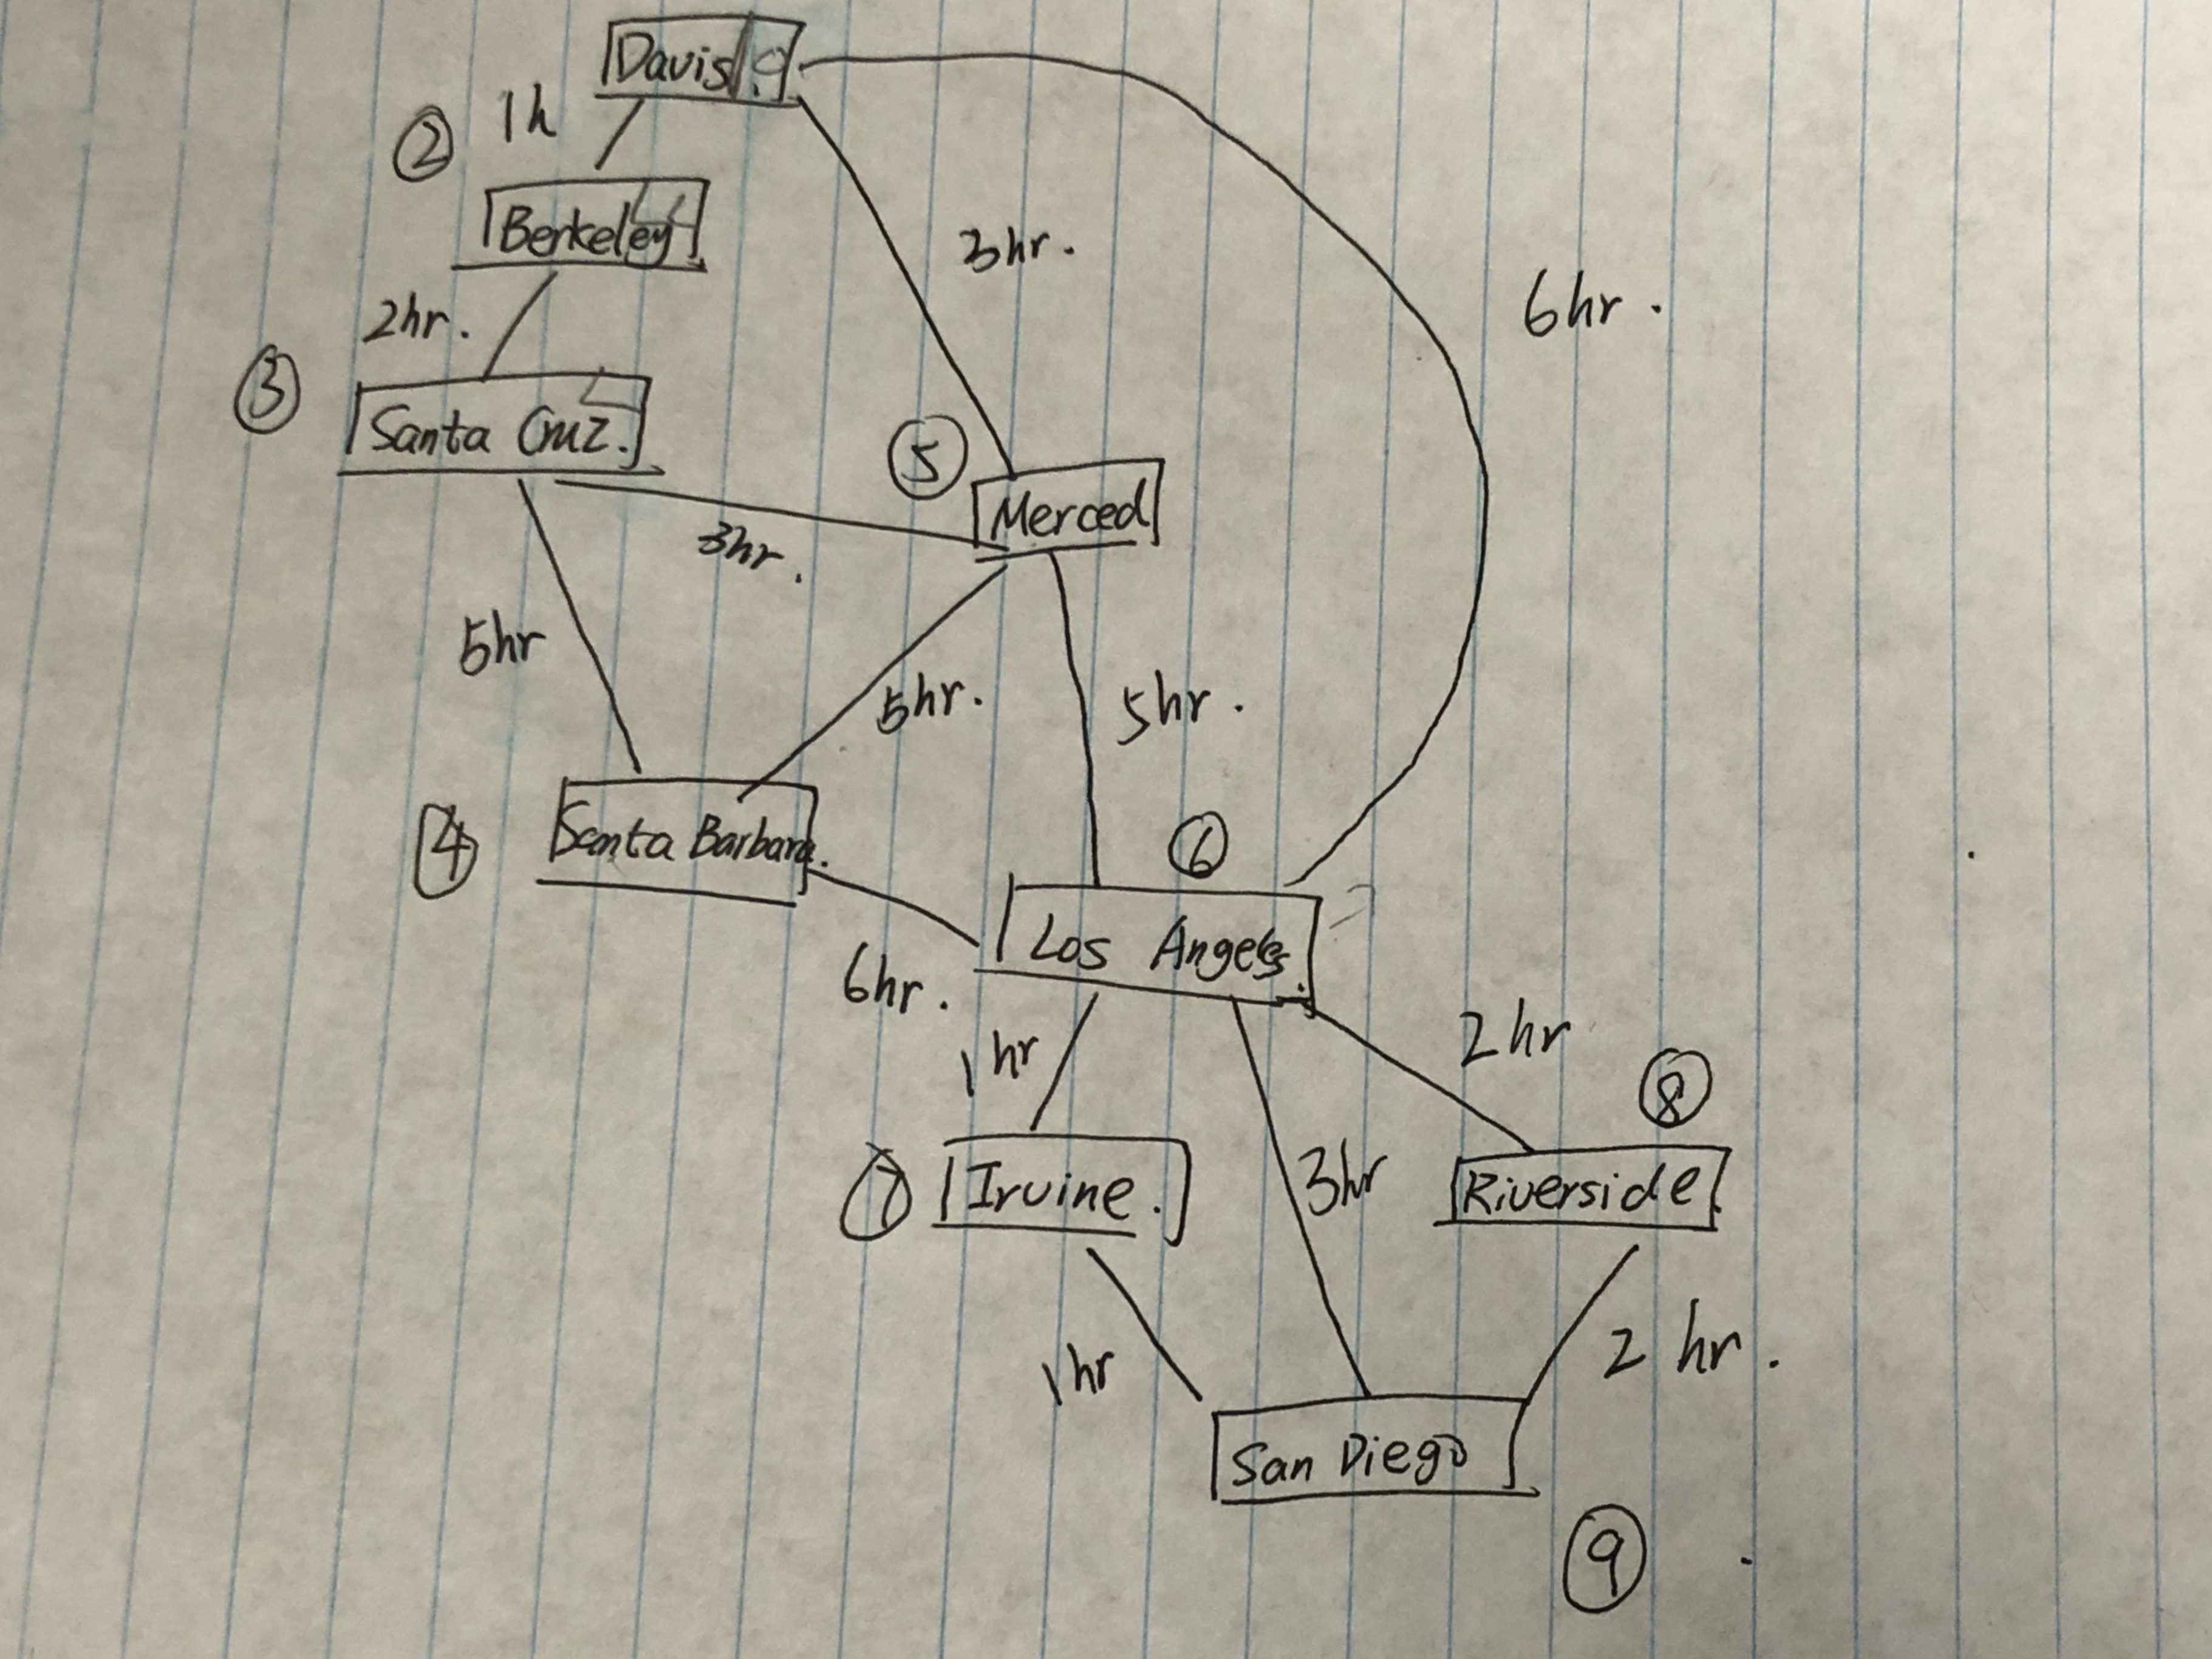 Davis
1h
②
Berkeley
3hr.
6hr.
2hr.
③
Santa Cruz.
⑤
Merced
3hr.
5hr
5hr.
5hr.
④
Santa Barbara.
⑥
Los Angeles.
6hr.
1hr
2hr
⑧
⑦
Irvine.
3hr
Riverside
1hr
2 hr.
San Diego
⑨